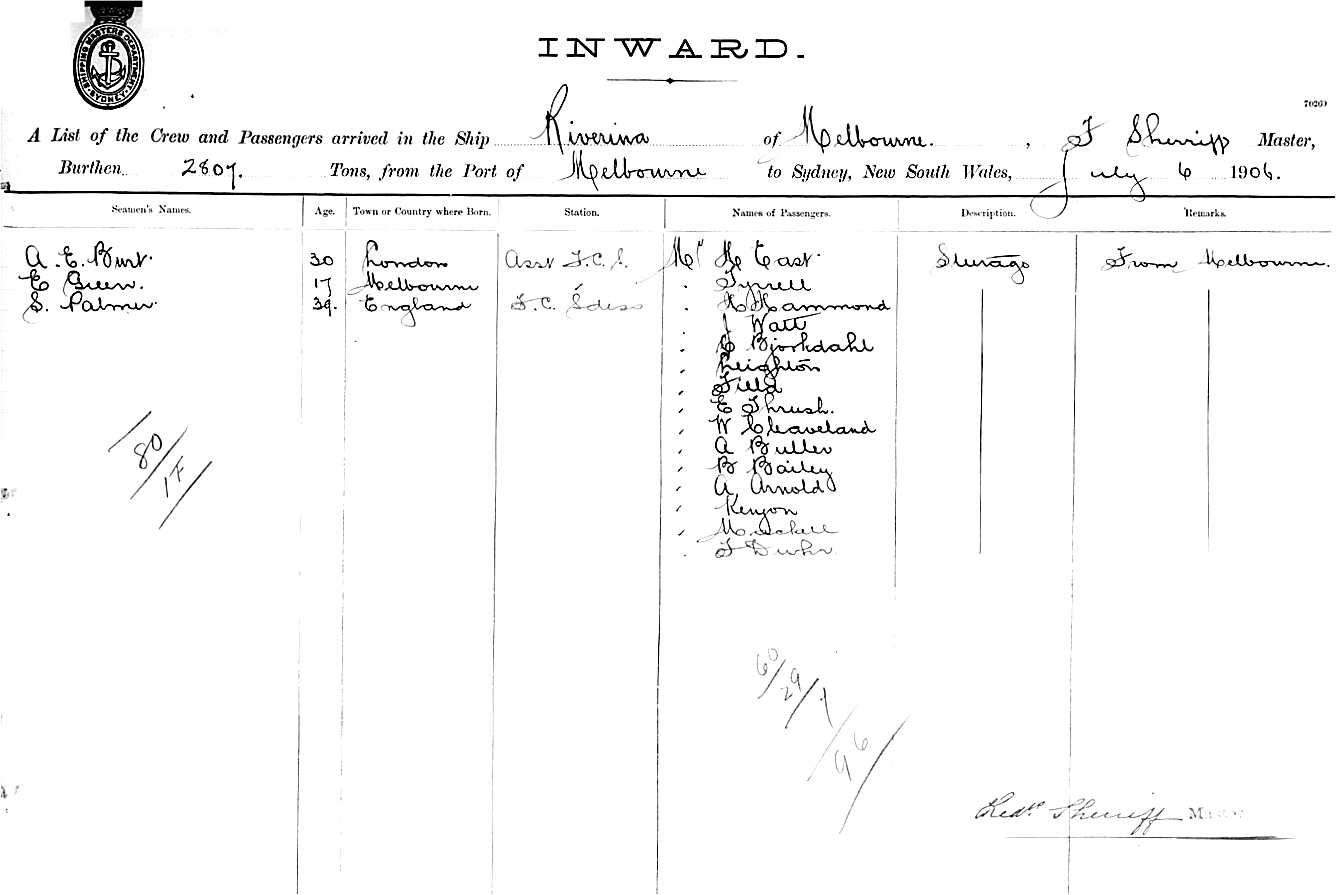 SHIPPING MASTERS DEPARTMENT SYDNEY
INWARD.
70260
A List of the Crew and Passengers arrived in the Ship Riverina of Melbourne. , F Sherriff Master,
Burthen 2807. Tons, from the Port of Melbourne to Sydney, New South Wales, July 6 1906.
Seamen's Names. Age. Town or Country where Born. Station. Names of Passengers. Description. Remarks.
A. E. Burt. 30 London Asst F.C.S. Mr H East. Steerage From Melbourne.
E Green. 17 Melbourne " Tyrrell
S. Palmer. 39. England F.C. Sdess " H Hammond
" J Watt
" Bjorkdahl
" Leighton
" Field
" E Thrush.
" W Cleaveland
" A Butler
" B Bailey
" A Arnold
" Kenyon
"
" F
80/1F
60/29/7/96
Fredk. Sherriff Master